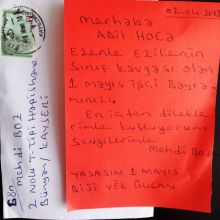 02.04.2013
merhaba
ADİL HOCA
Ezenle Ezilenin
Sınıf kavgası olan
1 mayıs işçi Bayra-
mınızı.
En içten dilekle
rimle kutluyorum
Sevgilerimle
Mehdi BOZ
YAŞASIN 1 MAYIS
BİJİ YEK GULAN
Gön Mehdi BOZ
2 Nolu T. Tipi Hapishane
Bünyan / KAYSERİ